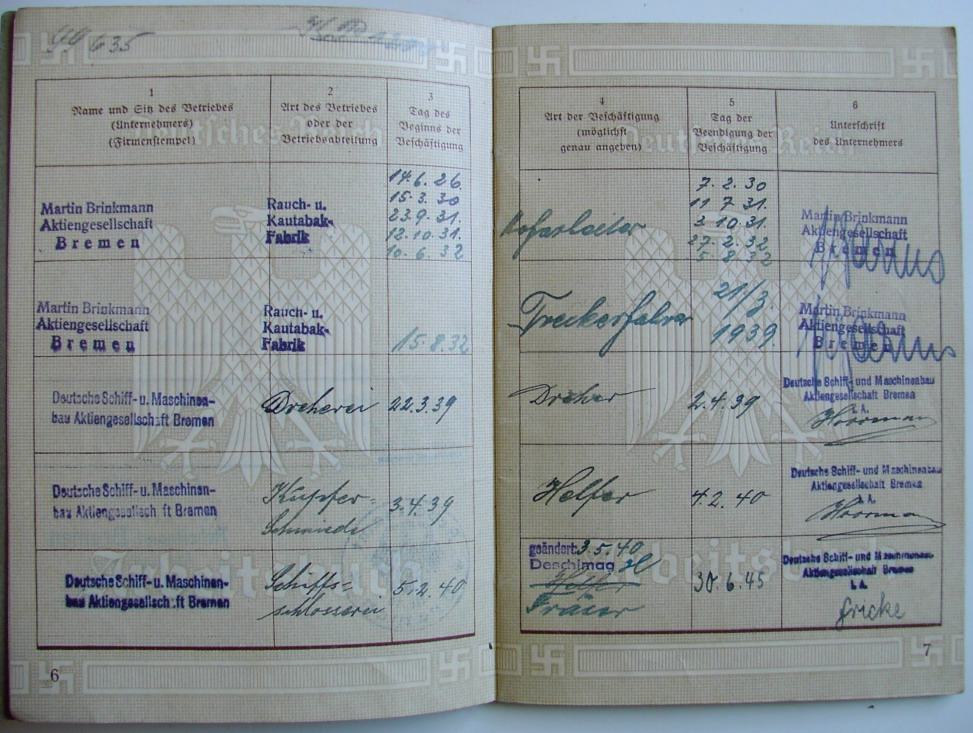 99635
1
Name und Sitz des Betriebes
(Unternehmers)
(Firmenstempel)
2
Art des Betriebes
oder der
Betriebsabteilung
3
Tag des
Beginns der
Beschäftigung
Martin Brinkmann
Aktiengesellschaft
Bremen
Rauch- u.
Kautabak-
Fabrik
14.6.26.
15.3.30
23.9.31.
12.10.31.
10.6.32
Martin Brinkmann
Aktiengesellschaft
Bremen
Rauch- u.
Kautabak-
Fabrik
15.8.32
Deutsche Schiff- u. Maschinen-
bau Aktiengesellschaft Bremen
Dreherei
22.3.39
Deutsche Schiff- u. Maschinen-
bau Aktiengesellschaft Bremen
Kupfer-
Schmiede
3.4.39
Deutsche Schiff- u. Maschinen-
bau Aktiengesellschaft Bremen
Schiffs-
schlosserei
5.2.40
Deutsches Reich
Arbeitsbuch
6
4
Art der Beschäftigung
(möglichst
genau angeben)
5
Tag der
Beendigung der
Beschäftigung
6
Unterschrift
des Unternehmers
7.2.30
11.7.31.
2.10.31
27.2.32
5.8.32
Martin Brinkmann
Aktiengesellschaft
Bremen
Treckerfahrer
21/3.
1939.
Martin Brinkmann
Aktiengesellschaft
Bremen
Dreher
2.4.39
Deutsche Schiff- und Maschinenbau
Aktiengesellschaft Bremen
i. A.
Helfer
4.2.40
Deutsche Schiff- und Maschinenbau
Aktiengesellschaft Bremen
i. A.
geändert 3.5.40
Deschimag
Helfer
Fräser
30.6.45
Deutsche Schiff- und Maschinenbau
Aktiengesellschaft Bremen
i. A.
Fricke
Deutsches Reich
Arbeitsbuch
7